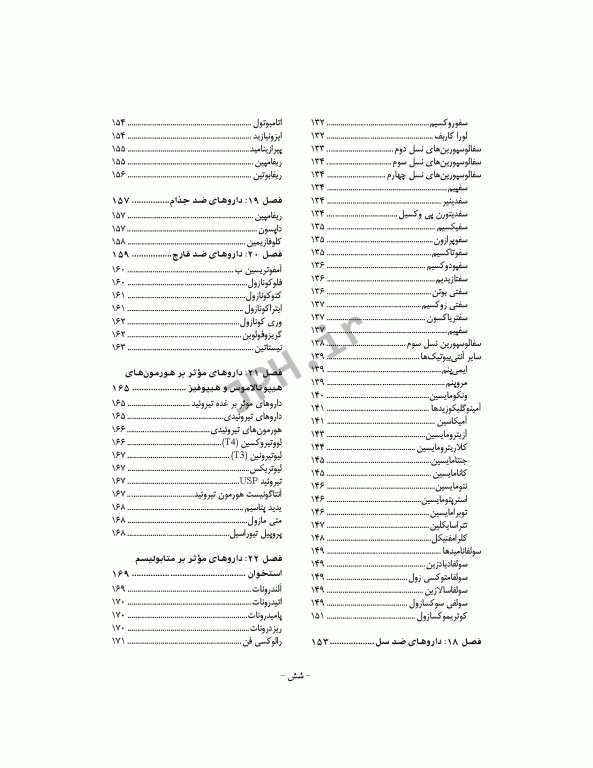 سفوروکسیم ........ ۱۳۲
لورا کاربف ........ ۱۳۲
سفالوسپورین‌های نسل دوم ........ ۱۳۳
سفالوسپورین‌های نسل سوم ........ ۱۳۴
سفالوسپورین‌های نسل چهارم ........ ۱۳۴
سفپیم ........ ۱۳۴
سفدینیر ........ ۱۳۴
سفدیتورن پی وکسیل ........ ۱۳۴
سفیکسیم ........ ۱۳۵
سفوپرازون ........ ۱۳۵
سفوتاکسیم ........ ۱۳۵
سفپودوکسیم ........ ۱۳۶
سفتازیدیم ........ ۱۳۶
سفتی بوتن ........ ۱۳۶
سفتی زوکسیم ........ ۱۳۷
سفتریاکسون ........ ۱۳۷
سفپیم ........ ۱۳۷
سفالوسپورین نسل سوم ........ ۱۳۸
سایر آنتی‌بیوتیک‌ها ........ ۱۳۹
ایمی‌پنم ........ ۱۳۹
مروپنم ........ ۱۳۹
ونکومایسین ........ ۱۴۰
آمینوگلیکوزیدها ........ ۱۴۱
آمیکاسین ........ ۱۴۱
آزیترومایسین ........ ۱۴۳
کلاریترومایسین ........ ۱۴۴
جنتامایسین ........ ۱۴۵
کانامایسین ........ ۱۴۵
نئومایسین ........ ۱۴۶
استرپتومایسین ........ ۱۴۶
توبرامایسین ........ ۱۴۶
تتراسایکلین ........ ۱۴۷
کلرامفنیکل ........ ۱۴۸
سولفانامیدها ........ ۱۴۹
سولفادیادزین ........ ۱۴۹
سولفامتوکسی زول ........ ۱۴۹
سولفاسالازین ........ ۱۴۹
سولفی سوکسازول ........ ۱۴۹
کوتریموکسازول ........ ۱۵۱
فصل ۱۸: داروهای ضد سل ........ ۱۵۳
اتامبوتول ........ ۱۵۴
ایزونیازید ........ ۱۵۴
پیرازینامید ........ ۱۵۵
ریفامپین ........ ۱۵۵
ریفابوتین ........ ۱۵۶
فصل ۱۹: داروهای ضد جذام ........ ۱۵۷
ریفامپین ........ ۱۵۷
داپسون ........ ۱۵۷
کلوفازیمین ........ ۱۵۸
فصل ۲۰: داروهای ضد قارچ ........ ۱۵۹
آمفوتریسین ب ........ ۱۶۰
فلوکونازول ........ ۱۶۰
کتوکونازول ........ ۱۶۱
ایتراکونازول ........ ۱۶۱
وری کونازول ........ ۱۶۲
گریزوفولوین ........ ۱۶۲
نیستاتین ........ ۱۶۳
فصل ۲۱: داروهای مؤثر بر هورمون‌های
هیپوتالاموس و هیپوفیز ........ ۱۶۵
داروهای موثر بر غده تیروئید ........ ۱۶۵
داروهای تیروئیدی ........ ۱۶۵
هورمون‌های تیروئیدی ........ ۱۶۶
لووتیروکسین (T4) ........ ۱۶۶
لیوتیرونین (T3) ........ ۱۶۷
لیوتریکس ........ ۱۶۷
تیروئید USP ........ ۱۶۷
آنتاگونیست هورمون تیروئید ........ ۱۶۷
یدید پتاسیم ........ ۱۶۸
متی مازول ........ ۱۶۸
پروپیل تیوراسیل ........ ۱۶۸
فصل ۲۲: داروهای مؤثر بر متابولیسم
استخوان ........ ۱۶۹
آلندرونات ........ ۱۶۹
اتیدرونات ........ ۱۷۰
پامیدرونات ........ ۱۷۰
ریزدرونات ........ ۱۷۰
رالوکسی فن ........ ۱۷۱
- شش -
JPH.ir